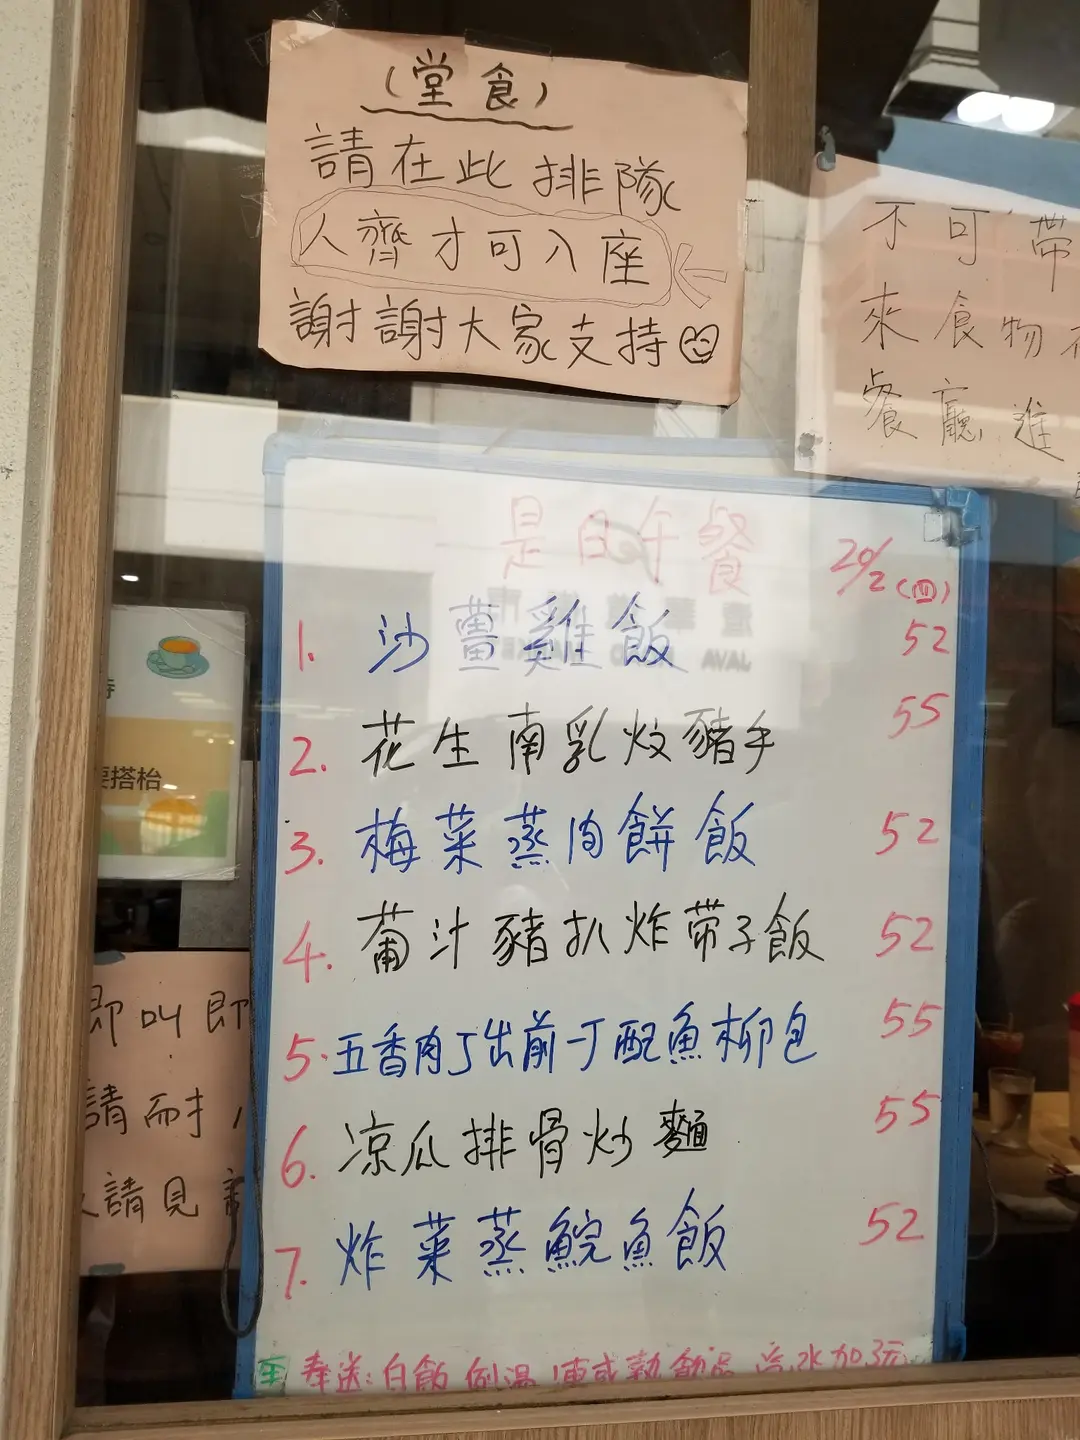 (堂食)
請在此排隊
人齊才可入座
謝謝大家支持
不可帶
來食物
餐廳進
是日午餐 20/2(四)
1. 沙薑雞飯 52
2. 花生南乳炆豬手 55
3. 梅菜蒸肉餅飯 52
4. 葡汁豬扒炸带子飯 52
5. 五香肉丁出前一丁配魚柳包 55
6. 凉瓜排骨炒麵 55
7. 炸菜蒸鯇魚飯 52
奉送:白飯 例湯 凍或熱飲品 汽水加3元
要搭枱
即叫即
請耐
請見
JAVA